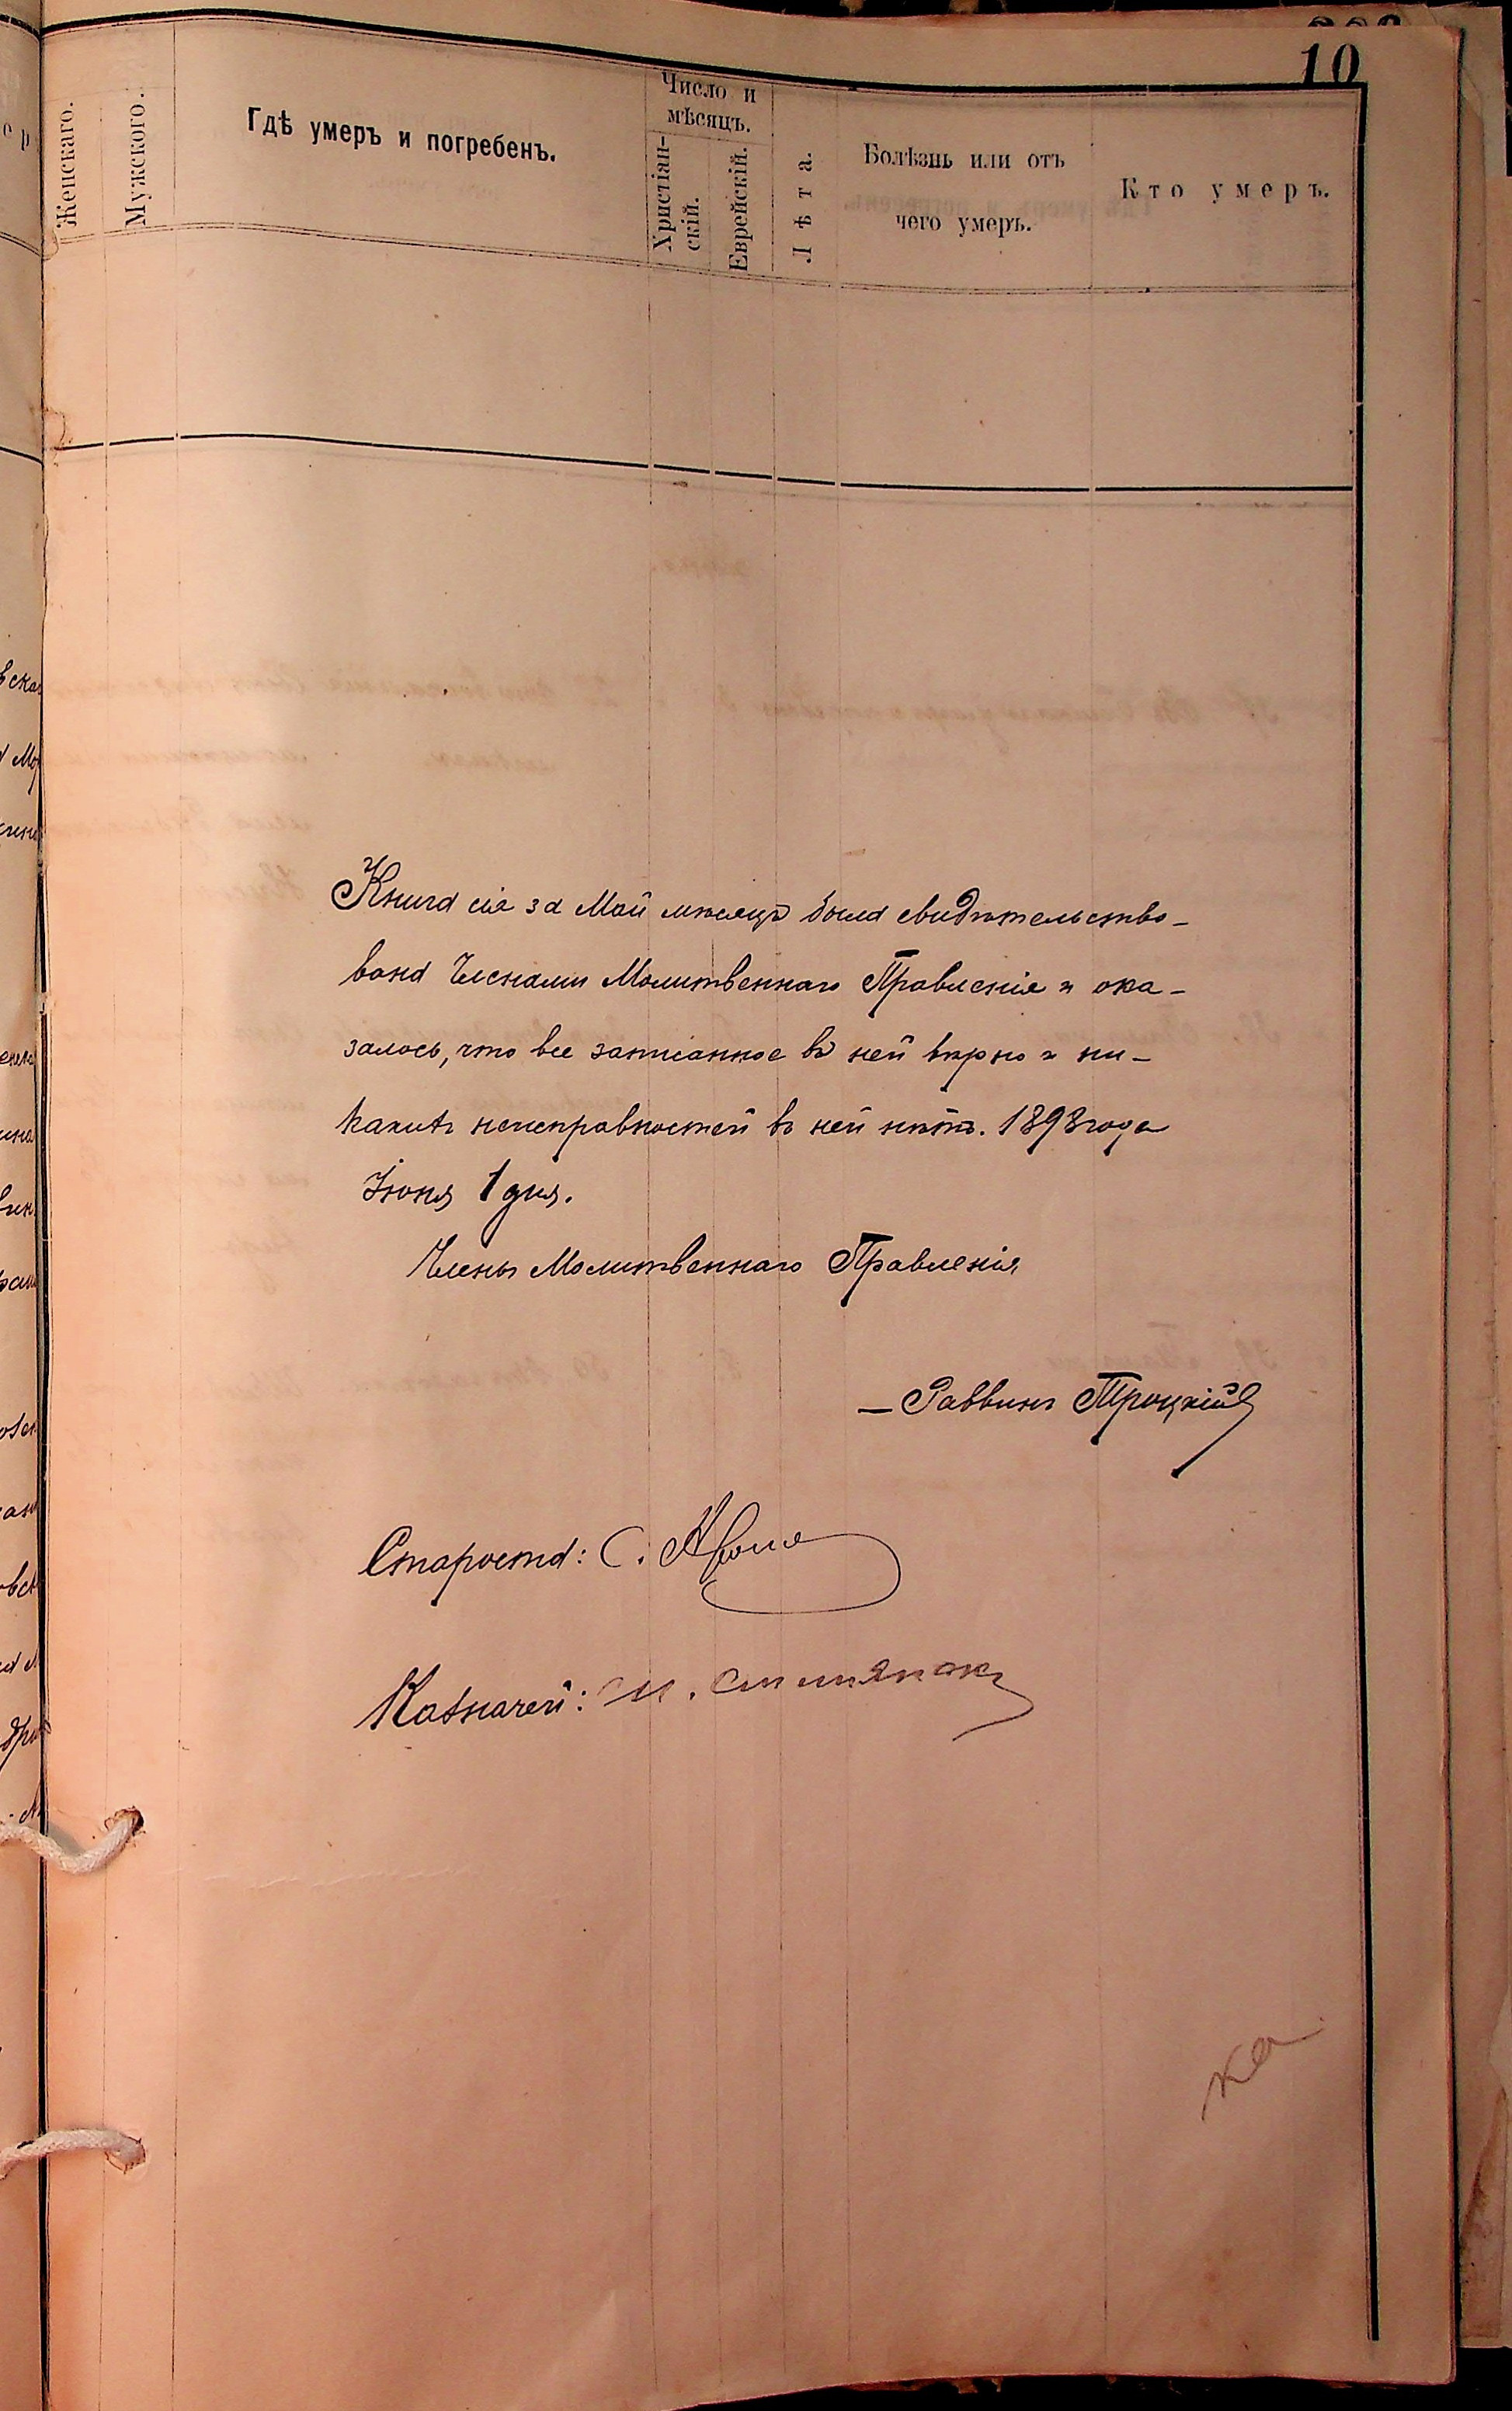 10
Женскаго.
Мужского.
Гдѣ умеръ и погребенъ.
Число и
мѣсяцъ.
Христіан-
скій.
Еврейскій.
Лѣта.
Болѣзнь или отъ
чего умеръ.
Кто умеръ.
Книга сія за Май мѣсяцъ была свидѣтельство-
вана Членами Молитвеннаго Правленія и ока-
залось, что все записанное въ ней вѣрно и ни-
какихъ неисправностей въ ней нѣтъ. 1898 года
Іюня 1 дня.
Члены Молитвеннаго Правленія
— Раввинъ Троцкій
Староста: С.
Казначей:
ка